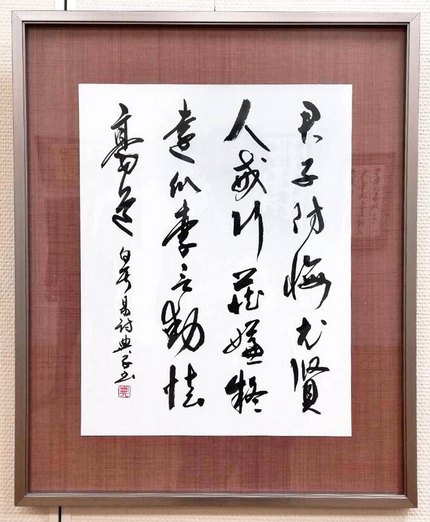 君子防悔尤賢
人戒行藏嫌疑
遠瓜李言動慎
毫芒 白居易詩典子書